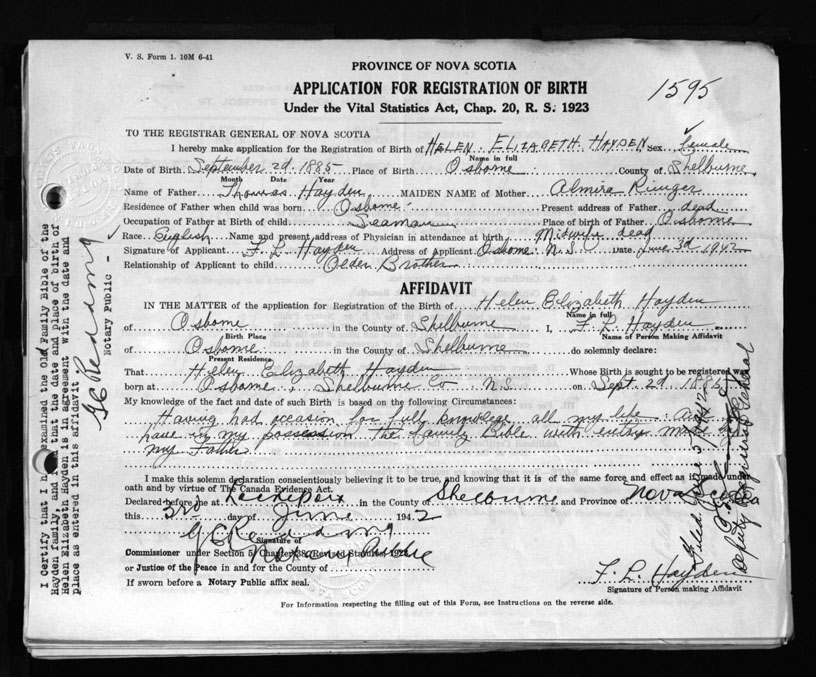 V. S. Form 1. 10M 6-41
PROVINCE OF NOVA SCOTIA
APPLICATION FOR REGISTRATION OF BIRTH
Under the Vital Statistics Act, Chap. 20, R. S. 1923
1595
TO THE REGISTRAR GENERAL OF NOVA SCOTIA
I hereby make application for the Registration of Birth of HELEN ELIZABETH HAYDEN Sex female
Name in full
Date of Birth September 2d 1885 Place of Birth Osborne County of Shelburne
Month Date Year
Name of Father Thomas Hayden MAIDEN NAME of Mother Almira
Residence of Father when child was born Osborne Present address of Father dead
Occupation of Father at Birth of child Seaman Place of birth of Father Osborne
Race English Name and present address of Physician in attendance at birth Midwife dead
Signature of Applicant F. L. Hayden Address of Applicant Osborne N.S. Date June 3d 1942
Relationship of Applicant to child Older Brother
AFFIDAVIT
IN THE MATTER of the application for Registration of the Birth of Helen Elizabeth Hayden
Name in full
of Osborne in the County of Shelburne I, F. L. Hayden
Birth Place Name of Person Making Affidavit
of Osborne in the County of Shelburne do solemnly declare:
Present Residence
That Helen Elizabeth Hayden Whose Birth is sought to be registered was
born at Osborne, Shelburne Co N.S. on Sept. 2d 1885
My knowledge of the fact and date of such Birth is based on the following Circumstances:
Having had occasion for full knowlege all my life. And
have in my possession the family Bible with entry made by
my Father
I make this solemn declaration conscientiously believing it to be true, and knowing that it is of the same force and effect as if made under
oath and by virtue of The Canada Evidence Act.
Declared before me at in the County of Shelburne and Province of Nova Scotia
this 3rd day of June 1942
G C Redding
Signature of
Notary Public
Commissioner under Section 5, Chapter 38, Revised Statutes 1923
or Justice of the Peace in and for the County of
If sworn before a Notary Public affix seal.
F. L. Hayden
Signature of Person making Affidavit
For Information respecting the filling out of this Form, see Instructions on the reverse side.
I Certify that I have examined the Old Family Bible of the
Hayden family, and find that the date and place of birth of
Helen Elizabeth Hayden is in agreement with the date and
place as entered in this affidavit
G C Redding
Notary Public -
Filed
Deputy Registrar General